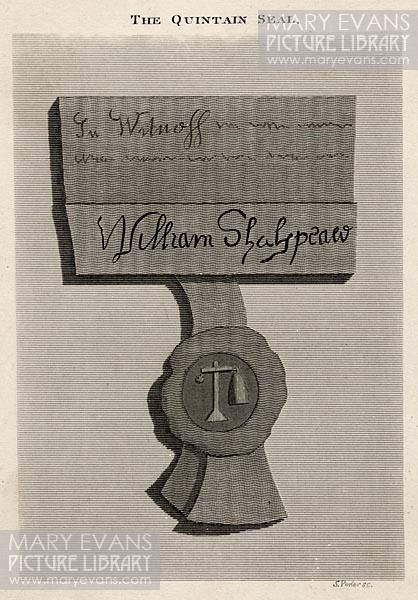 THE QUINTAIN SEAL.
MARY EVANS
PICTURE LIBRARY
www.maryevans.com
In Witness
William Shakspeare
MARY EVANS
PICTURE LIBRARY
www.maryevans.com